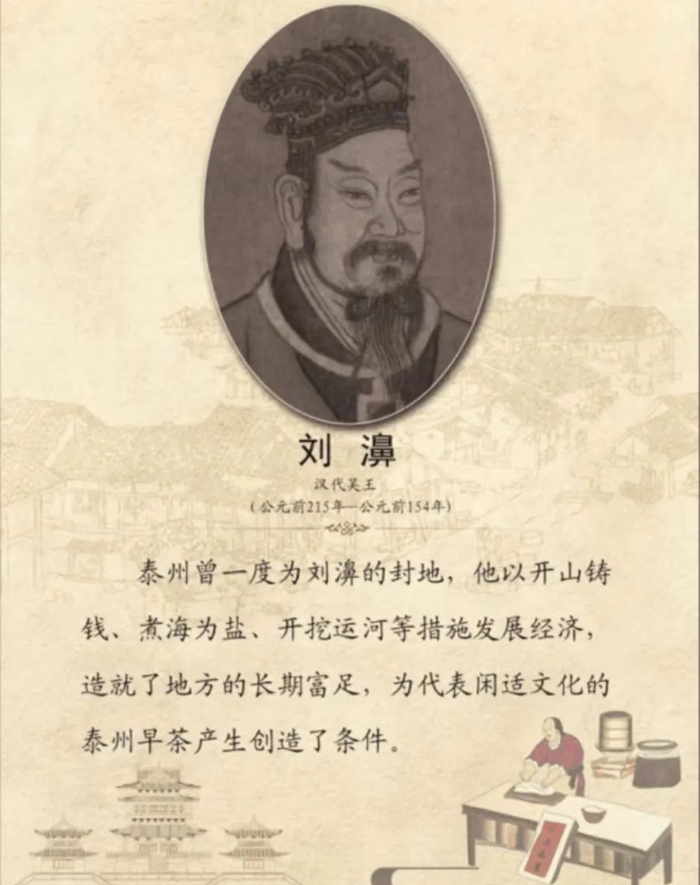 刘濞
汉代吴王
(公元前215年—公元前154年)
泰州曾一度为刘濞的封地，他以开山铸
钱、煮海为盐、开挖运河等措施发展经济，
造就了地方的长期富足，为代表闲适文化的
泰州早茶产生创造了条件。